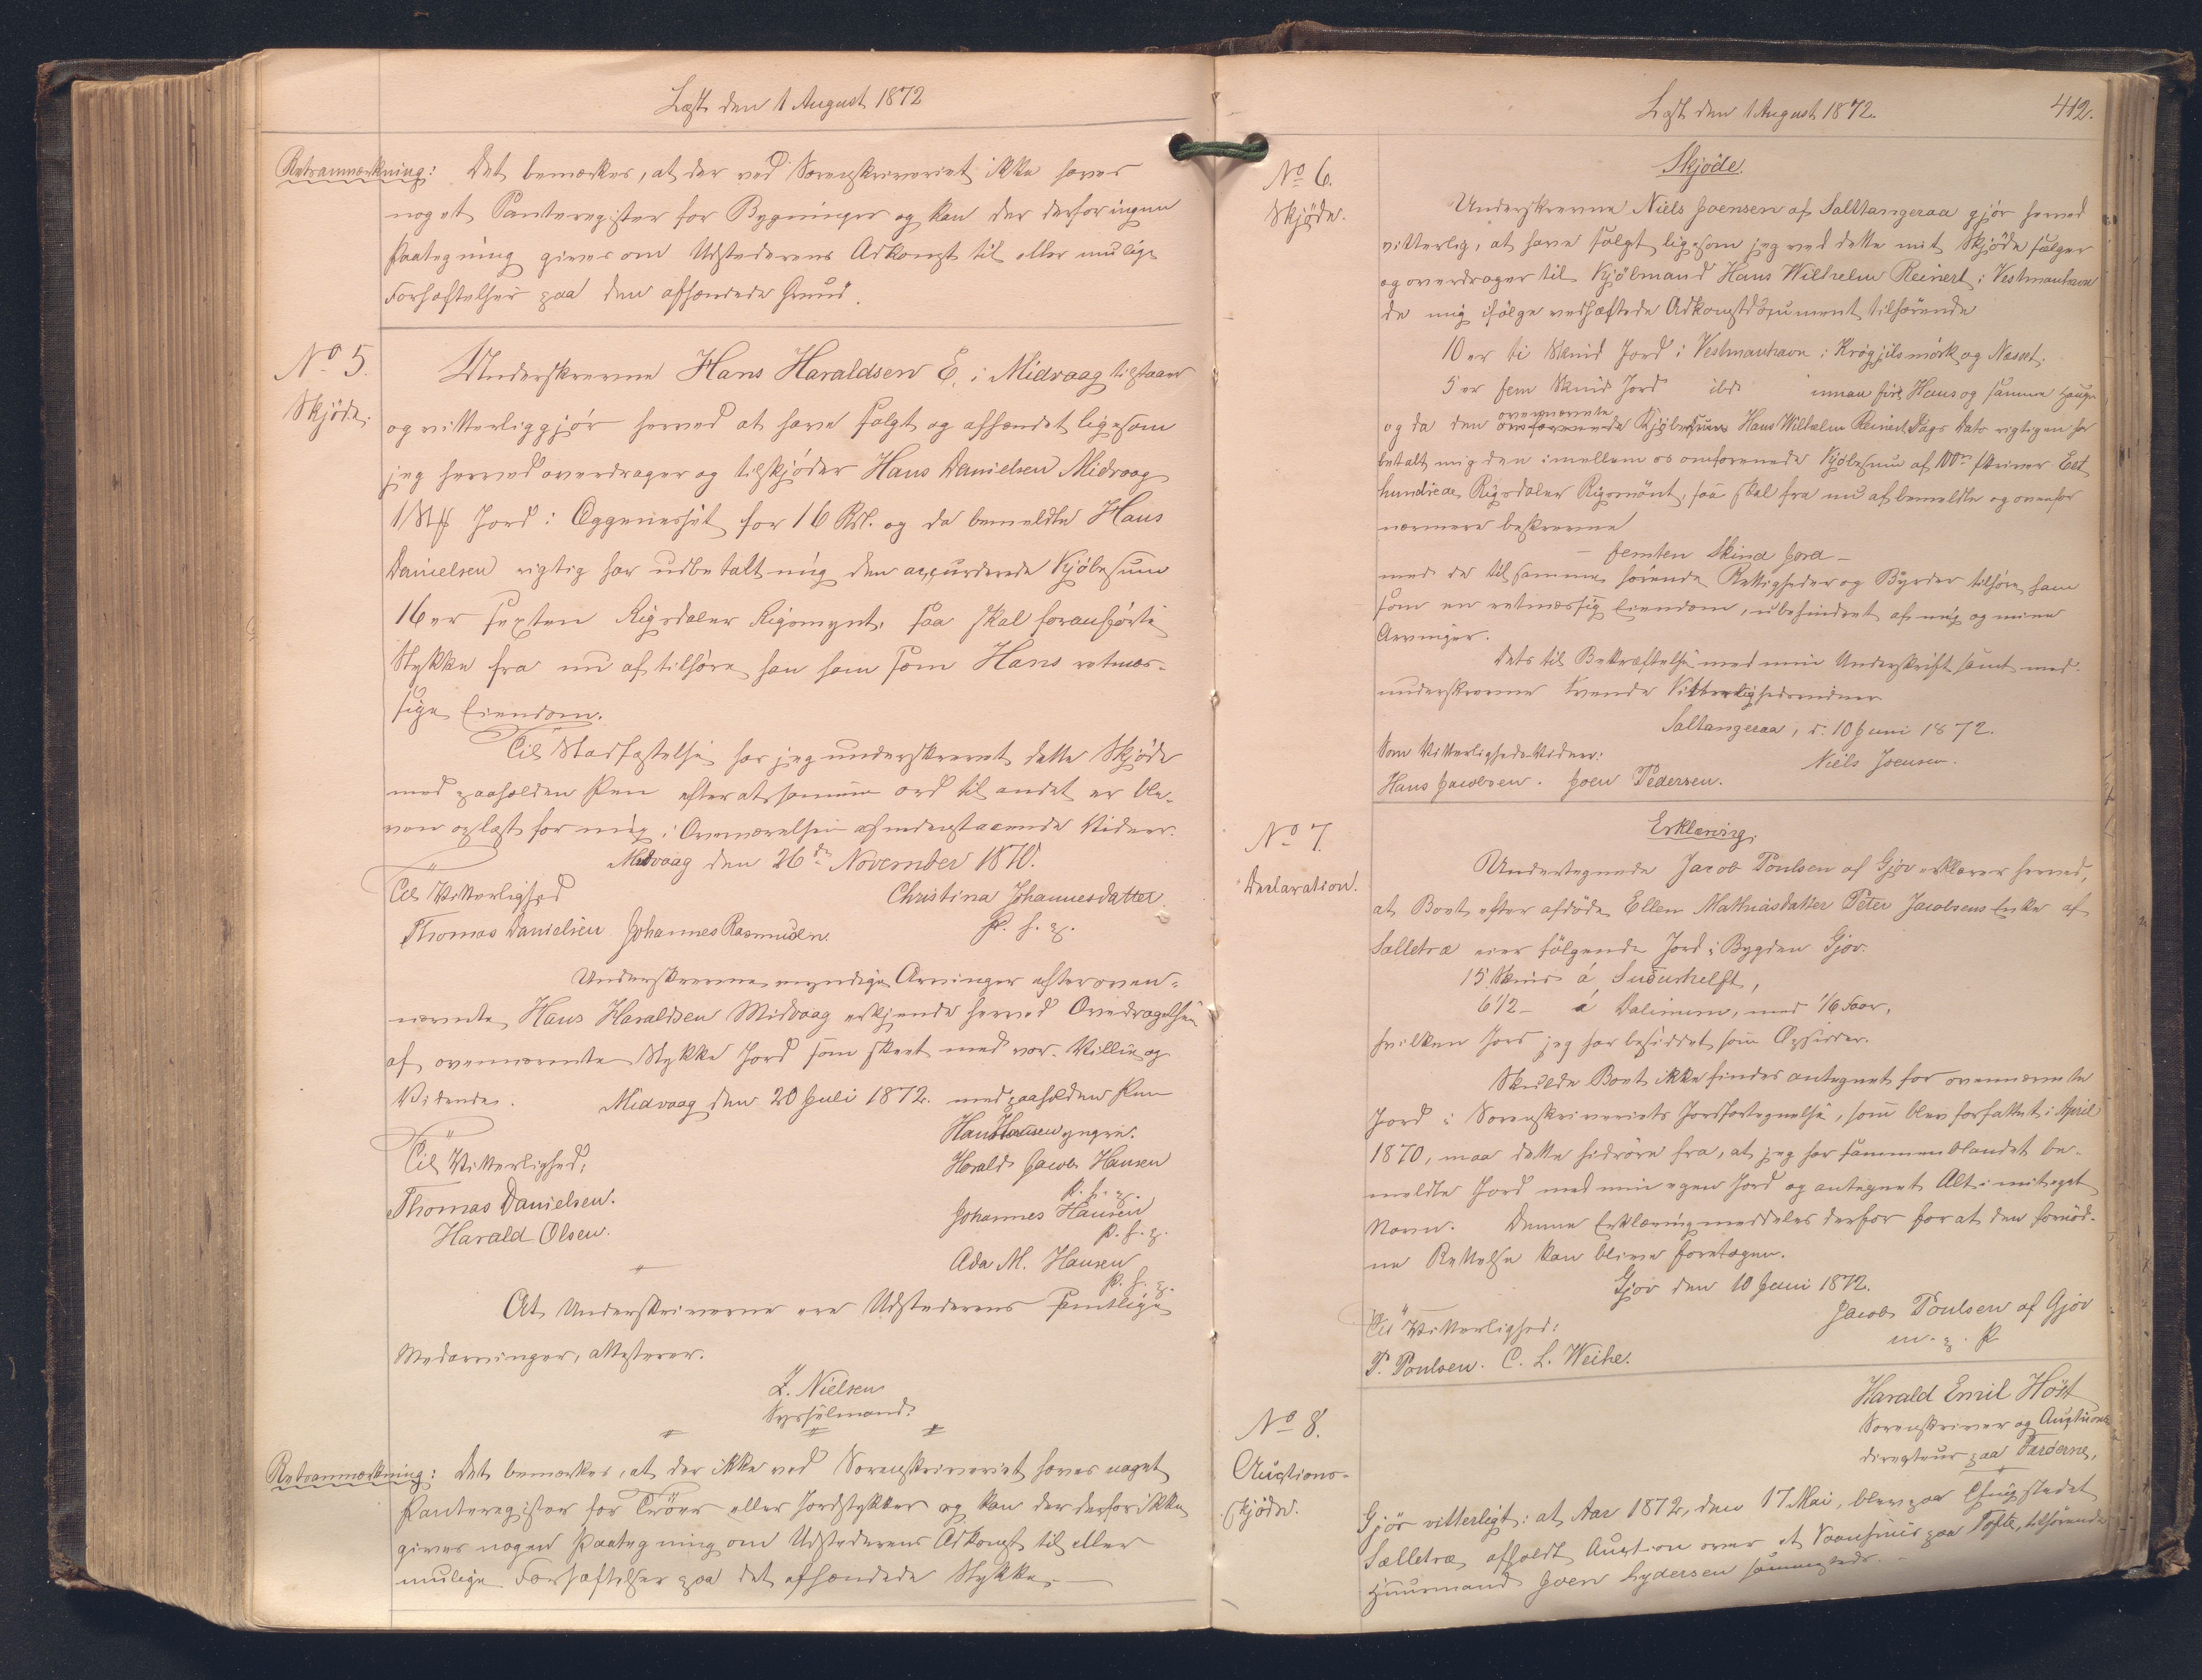 Læst den 1 August 1872
Retsanmærkning: Det bemærkes, at der ved Sorenskriveriet ikke haves
noget Panteregister for Bygninger og kan der derfor ingen
Paategning gives om Udstederens Adkomst til eller mulige
Forhæftelser paa den afhændede Grund.
No 5.
Skjöde.
Underskrevne Hans Haraldsen E. i Midvaag tilstaaer
og vitterliggjör herved at have solgt og afhændet ligesom
jeg herved overdrager og tilskjöder Hans Danielsen Midvaag
Jord i for 16 Rd. og da bemeldte Hans
Danielsen rigtig har udbetalt mig den accorderede Kjöbesum
16 er sexten Rigsdaler Rigsmynt, saa skal foranförte
Stykke fra nu af tilhöre ham som Hans retmæs-
sige Eiendom.
Til Stadfæstelse har jeg underskrevet dette Skjöde
med paaholden Pen efterat samme ord til andet er ble-
ven oplæst for mig i Overværelse af understaaende Vidner.
Midvaag den 26de November 1870.
Til Vitterlighed
Christina Johannesdatter
Thomas Danielsen Johannes Rasmusen.
p. h. p.
Underskrevne myndige Arvinger efter oven-
nævnte Hans Haraldsen Midvaag erkjende herved Overdragelsen
af ovennævnte Stykke Jord som skeet med vor Villie og
Vidende.
Midvaag den 20 Juli 1872. med paaholden Pen
Hans Hansen yngre.
Til Vitterlighed,
Harald Jacob Hansen
p. h. p.
Thomas Danielsen.
Johannes Hansen
Harald Olsen.
p. h. p.
Ada M. Hansen
p. h. p.
At Underskriverne ere Udstederens samtlige
Medarvinger, attesterer.
Z. Nielsen
Sysselmand.
Retsanmærkning: Det bemærkes, at der ikke ved Sorenskriveriet haves noget
Panteregister for Tröer eller Jordstykker og kan der derfor ikke
gives nogen Paategning om Udstederens Adkomst til eller
mulige Forhæftelser paa det afhændede Stykke.
Læst den 1 August 1872.
412.
No 6.
Skjöde.
Skjöde.
Underskrevne Niels Joensen af Salttangeraa gjör herved
vitterlig, at have solgt ligesom jeg ved dette mit Skjöde sælger
og overdrager til Kjöbmand Hans Wilhelm Reinert i Vestmanhavn
de mig ifölge vedhæftede Adkomstdocument tilhörende
10 er ti Skind Jord i Vestmanhavn i og Nesset,
5 er fem Skind Jord ibd innan firi Haus og samme
og da den ovennævnte Hans Wilhelm Reinert Dags Dato rigtigen har
betalt mig den imellem os omforenede Kjöbesum af 100 skriver Eet
hundrede Rigsdaler Rigsmönt, saa skal fra nu af bemeldte og ovenfor
nærmere beskrevne
- femten Skind Jord -
med de til samme hörende Rettigheder og Byrder tilhöre ham
som en retmæssig Eiendom, ubehindret af mig og mine
Arvinger.
Dets til Bekræftelse med min Underskrift samt med-
underskrevne tvende Vitterlighedsvidner
Saltangeraa, d. 10 Juni 1872.
Som Vitterligheds Vidner:
Niels Joensen.
Hans Jacobsen. Joen Pedersen.
No 7.
Declaration.
Erklæring.
Undertegnede Jacob Poulsen af Gjov erklærer herved,
at Boet efter afdöde Ellen Mathiasdatter Peter Jacobsens Enke af
Selletræ eier fölgende Jord i Bygden Gjov.
15 Skind á Sudurhelft,
6 1/2 - á Dalinum, med 1/6 Faar,
hvilken Jord jeg har besiddet som Opsidder.
Skulde Boet ikke findes antegnet for ovennævnte
Jord i Sorenskriveriets Jordfortegnelse, som blev forfattet i April
1870, maa dette hidröre fra, at jeg har sammenblandet be-
meldte Jord med min egen Jord og antegnet Alt i mit eget
Navn. Denne Erklæring meddeles derfor for at den fornöd-
ne Rettelse kan blive foretagen.
Gjov den 10 Juni 1872.
Til Vitterlighed:
Jacob Poulsen af Gjov
m. p. P.
P. Poulsen. C. L. Weihe.
No 8.
Auctions-
skjöde.
Harald Emil Höst
Sorenskriver og Auctions
directeur paa Færöerne,
Gjör vitterligt: at Aar 1872, den 17 Mai, blev paa Thingstedet
Selletræ afholdt Auction over et paa Tofte, tilhörende
Huusmand Joen Lydersen sammesteds.